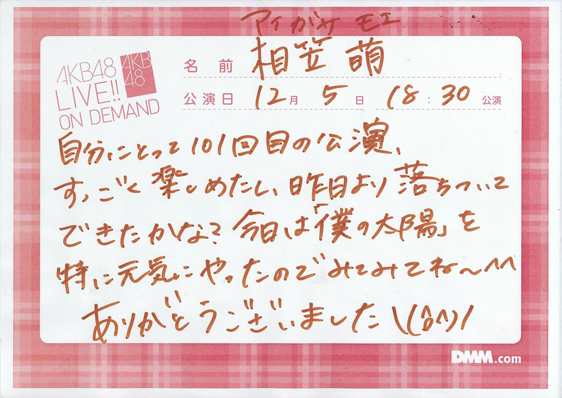 アイがサ モエ
AKB48
LIVE!!
ON DEMAND
AKB
48
名前 相笠 萌
公演日 12月 5日 18:30 公演
自分にとって101回目の公演、
すっごく楽しめたし、昨日より落ちついて
できたかな？今日は「僕の太陽」を
特に元気にやったのでみてみてね〜^^
ありがとうございました\(^o^)/
DMM.com